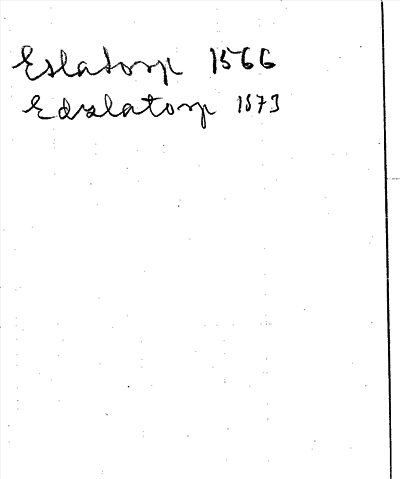 Eslatorp 1566
Edslatorp 1573